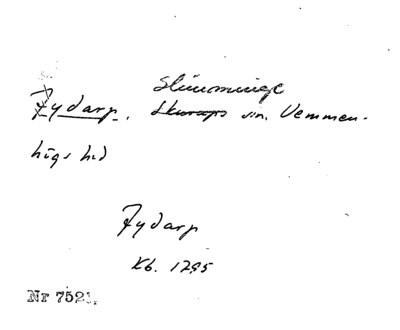 Slimminge
Fydarp. Skurups sn. Vemmen-
högs hd
Fydarp
Kb. 1795
Nr 7521.